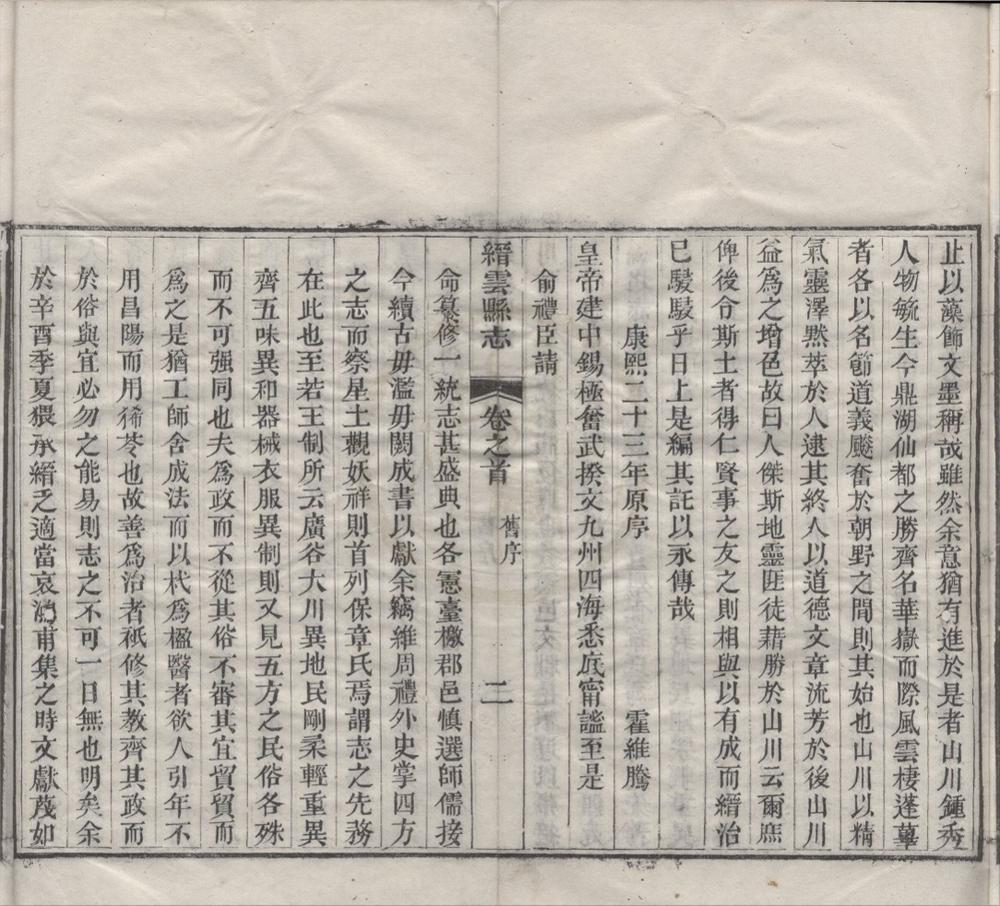 止以藻飾文墨稱哉雖然余意猶有進於是者山川鍾秀
人物毓生今鼎湖仙都之勝齊名華嶽而際風雲棲蓬蓽
者各以名節道義飈奮於朝野之間則其始也山川以精
氣靈澤黙萃於人逮其終人以道德文章流芳於後山川
益爲之增色故曰人傑斯地靈匪徒藉勝於山川云爾庶
俾後令斯土者得仁賢事之友之則相與以有成而縉治
已駸駸乎日上是編其託以永傳哉
康熙二十三年原序 霍維騰
皇帝建中錫極奮武揆文九州四海悉底甯謐至是
俞禮臣請
縉雲縣志 卷之首 舊序 二
命纂修一統志甚盛典也各憲臺檄郡邑慎選師儒接
今續古毋濫毋闕成書以獻余竊維周禮外史掌四方
之志而察星土觀妖祥則首列保章氏焉謂志之先務
在此也至若王制所云廣谷大川異地民剛柔輕重異
齊五味異和器械衣服異制則又見五方之民俗各殊
而不可强同也夫爲政而不從其俗不審其宜貿貿而
爲之是猶工師舍成法而以杙爲楹醫者欲人引年不
用昌陽而用豨苓也故善爲治者祇修其教齊其政而
於俗與宜必勿之能易則志之不可一日無也明矣余
於辛酉季夏猥承縉乏適當哀鴻甫集之時文獻蔑如